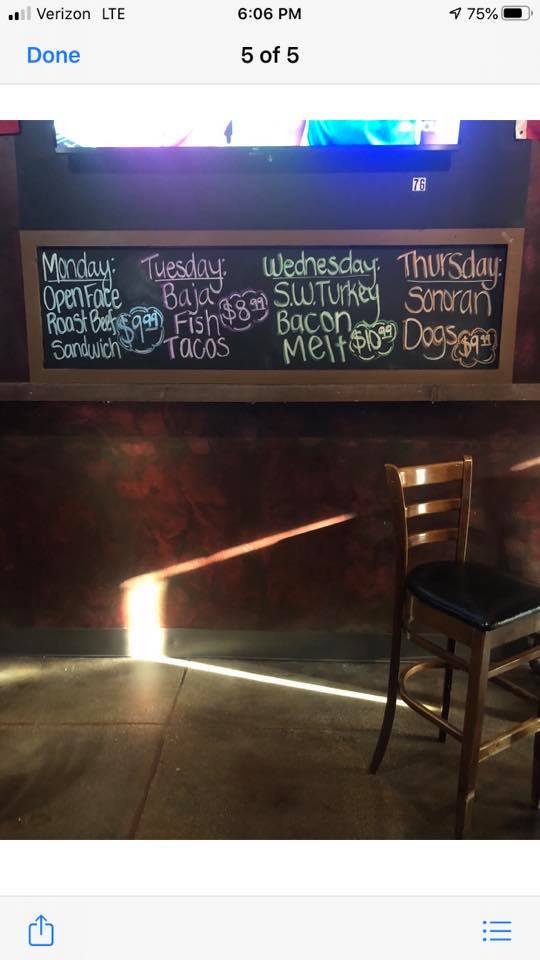 Verizon LTE 6:06 PM 75%
Done 5 of 5
76
Monday:
Open Face
Roast Beef
Sandwich
$9.99
Tuesday:
Baja
Fish
Tacos
$8.99
Wednesday:
S.W. Turkey
Bacon
Melt
$10.99
Thursday:
Sonoran
Dogs
$9.99